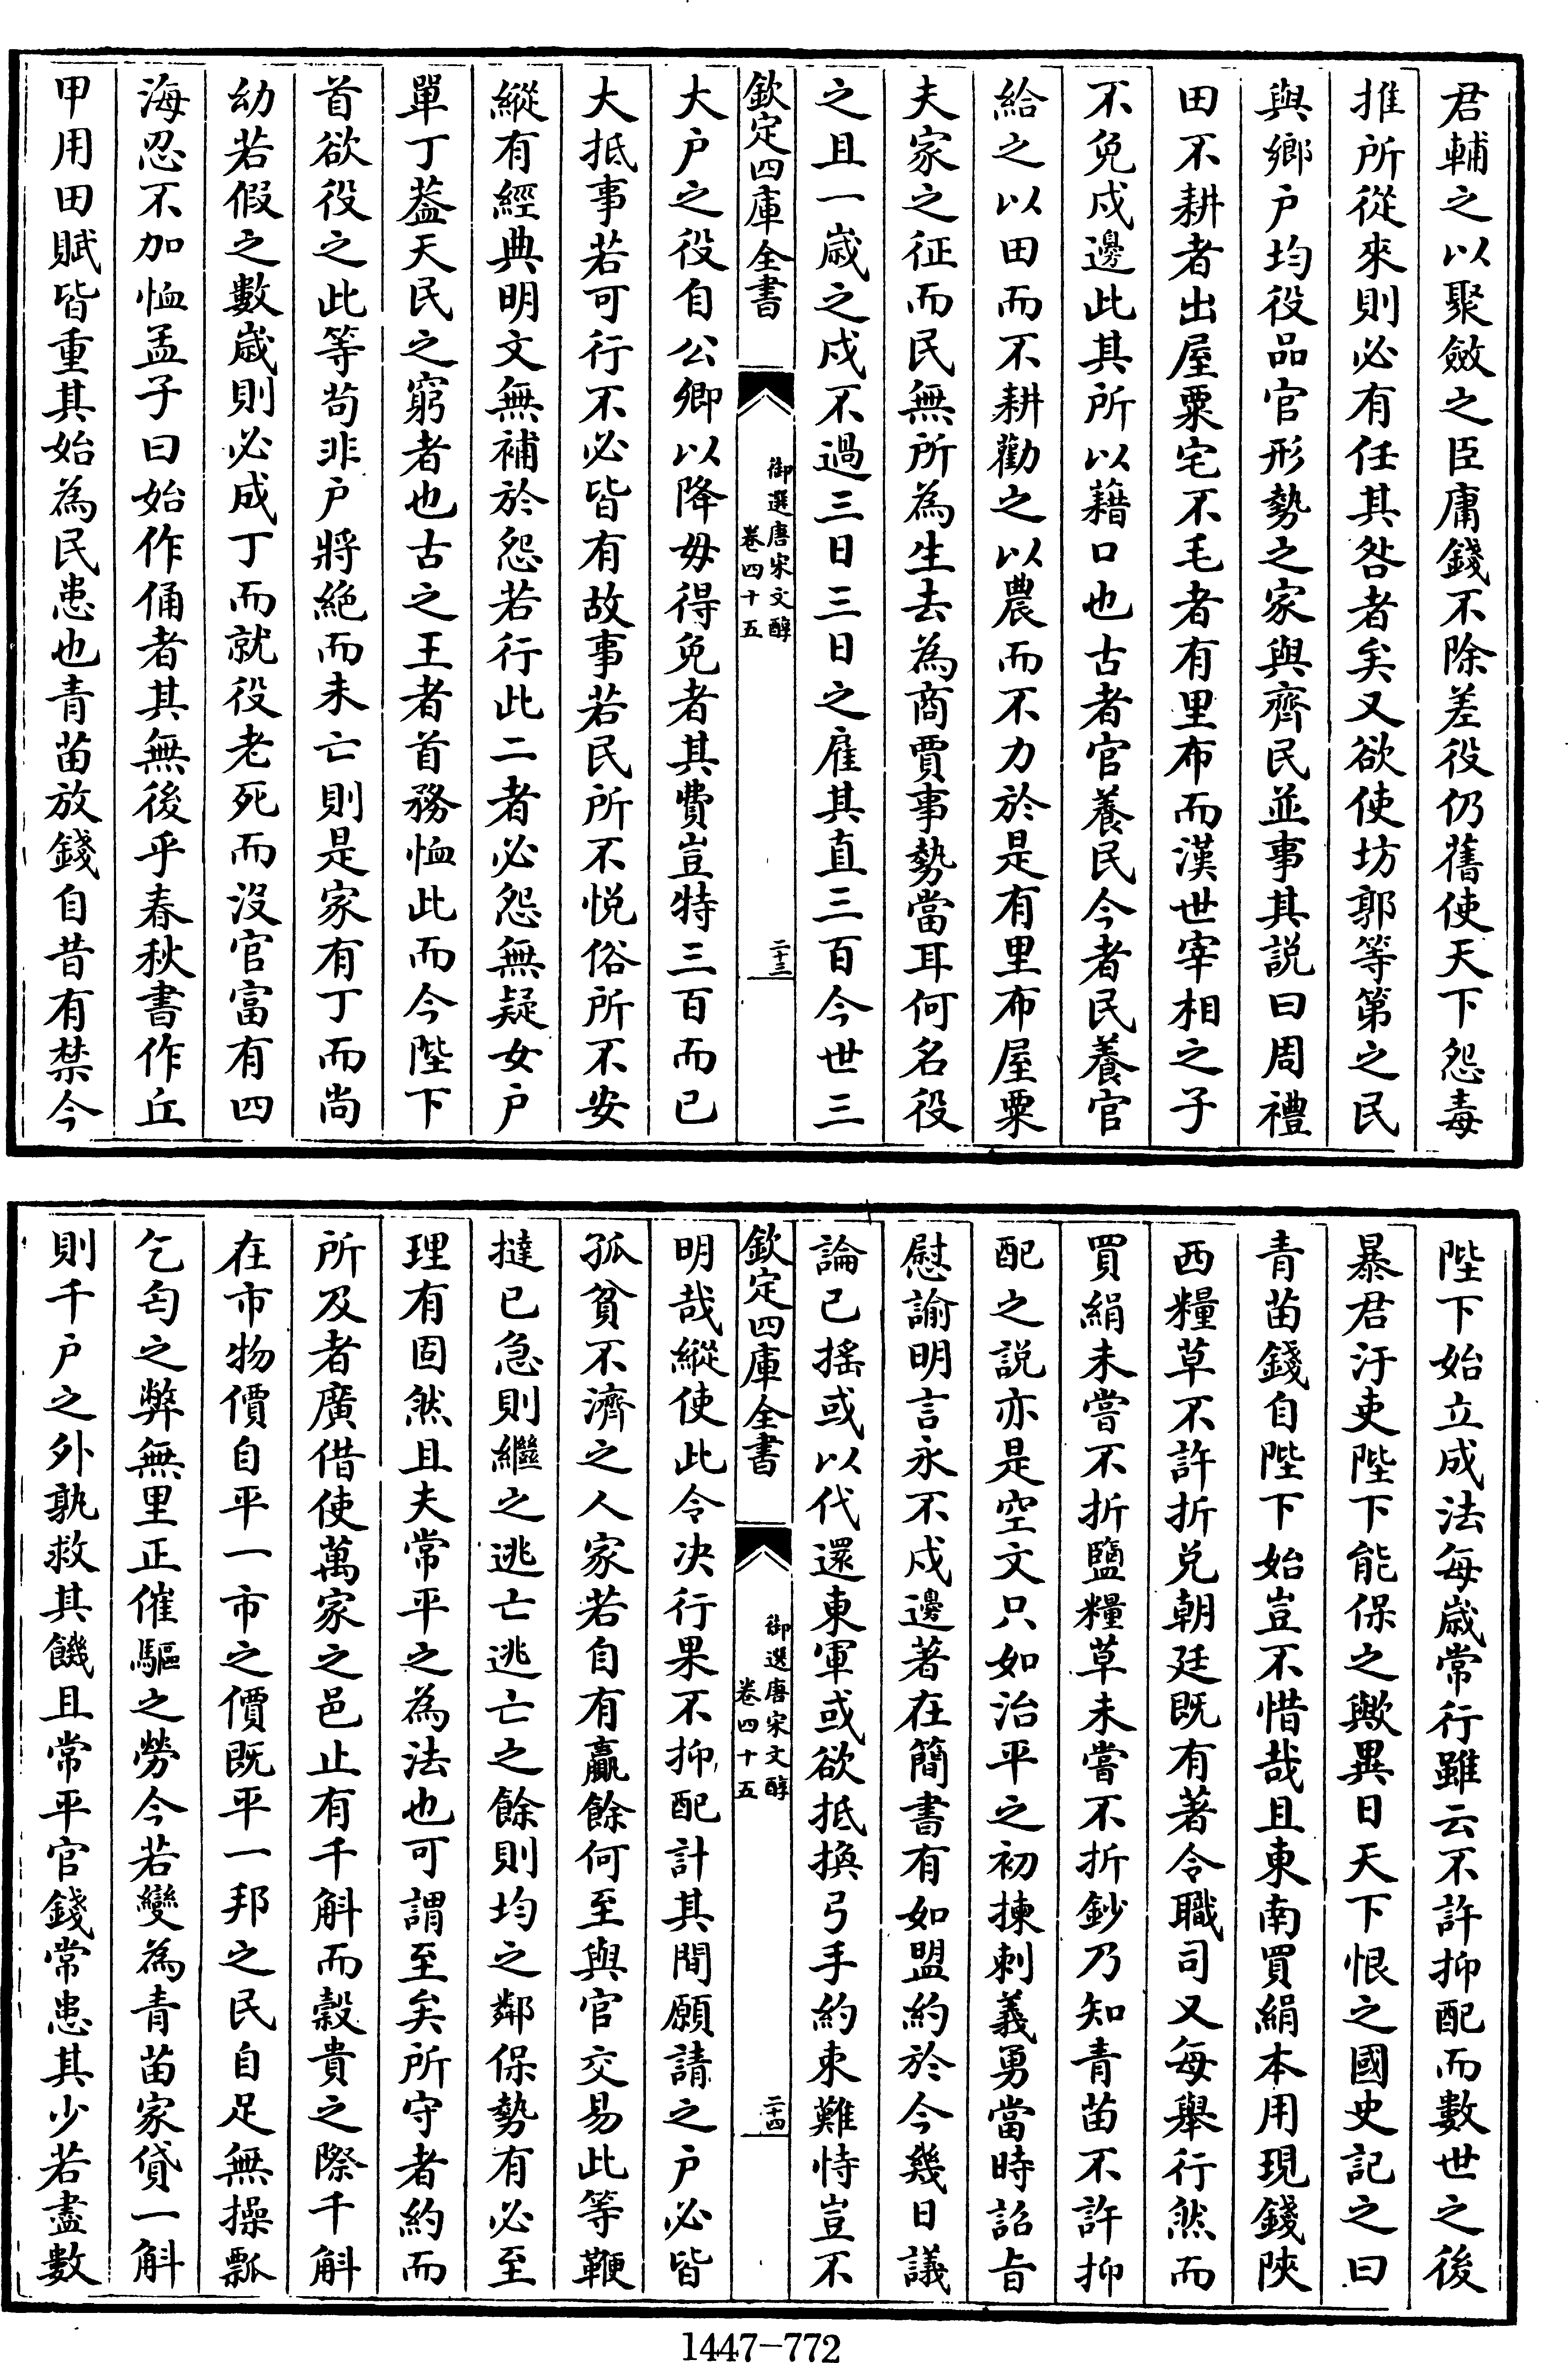 君輔之以聚斂之臣庸錢不除差役仍舊使天下怨毒
推所從來則必有任其咎者矣又欲使坊郭等第之民
與鄉户均役品官形勢之家與齊民並事其説曰周禮
田不耕者出屋粟宅不毛者有里布而漢世宰相之子
不免戍邊此其所以藉口也古者官養民今者民養官
給之以田而不耕勸之以農而不力於是有里布屋粟
夫家之征而民無所為生去為商賈事勢當耳何名役
之且一歲之戍不過三日三日之雇其直三百今世三
欽定四庫全書
御選唐宋文醇
卷四十五
二十三
大户之役自公卿以降毋得免者其費豈特三百而已
大抵事若可行不必皆有故事若民所不悦俗所不安
縱有經典明文無補於怨若行此二者必怨無疑女户
單丁葢天民之窮者也古之王者首務恤此而今陛下
首欲役之此等茍非户將絶而未亡則是家有丁而尚
幼若假之數歲則必成丁而就役老死而沒官富有四
海忍不加恤孟子曰始作俑者其無後乎春秋書作丘
甲用田賦皆重其始為民患也青苗放錢自昔有禁今
陛下始立成法每歲常行雖云不許抑配而數世之後
暴君汙吏陛下能保之歟異日天下恨之國史記之曰
青苗錢自陛下始豈不惜哉且東南買絹本用現錢陝
西糧草不許折兌朝廷既有著令職司又每舉行然而
買絹未嘗不折鹽糧草未嘗不折鈔乃知青苗不許抑
配之説亦是空文只如治平之初揀刺義勇當時詔旨
慰諭明言永不戍邊著在簡書有如盟約於今幾日議
論已搖或以代還東軍或欲抵換弓手約束難恃豈不
欽定四庫全書
御選唐宋文醇
卷四十五
二十四
明哉縱使此令決行果不抑配計其間願請之户必皆
孤貧不濟之人家若自有贏餘何至與官交易此等鞭
撻已急則繼之逃亡逃亡之餘則均之鄰保勢有必至
理有固然且夫常平之為法也可謂至矣所守者約而
所及者廣借使萬家之邑止有千斛而穀貴之際千斛
在市物價自平一市之價既平一邦之民自足無操瓢
乞匄之弊無里正催驅之勞今若變為青苗家貸一斛
則千户之外孰救其饑且常平官錢常患其少若盡數
1447-772